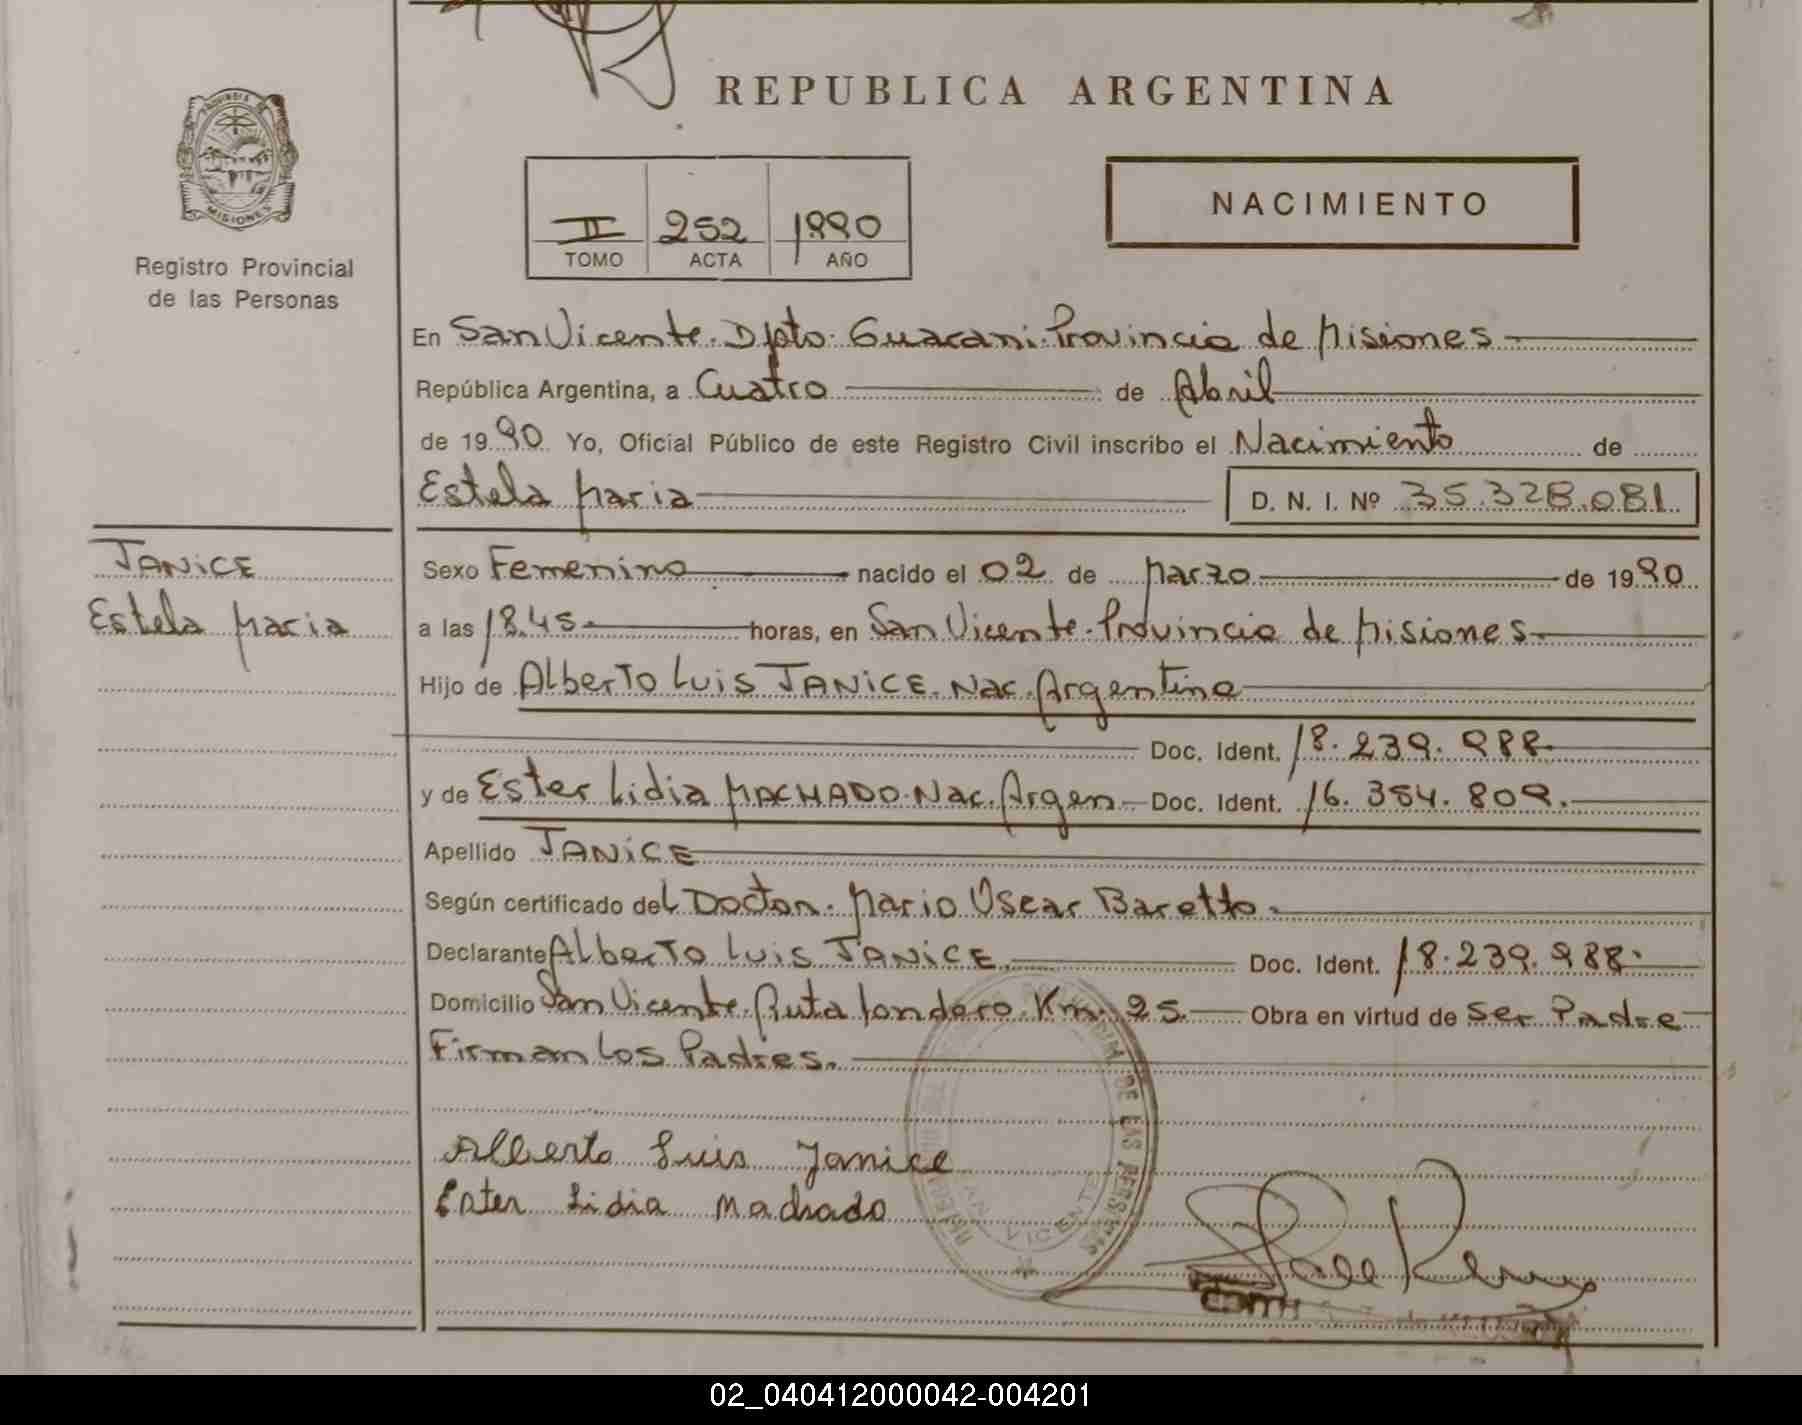 REPUBLICA ARGENTINA
PROVINCIA DE
MISIONES
Registro Provincial
de las Personas
II 252 1990
TOMO ACTA AÑO
NACIMIENTO
En San Vicente. Dpto. Guarani. Provincia de Misiones
República Argentina, a Cuatro de Abril
de 1990 Yo, Oficial Público de este Registro Civil inscribo el Nacimiento de
Estela Maria D. N. I. Nº 35.328.081
JANICE
Estela Maria
Sexo Femenino nacido el 02 de Marzo de 1990
a las 18.45 horas, en San Vicente. Provincia de Misiones
Hijo de Alberto Luis JANICE. Nac. Argentina
Doc. Ident. 18.239.988
y de Ester Lidia MACHADO. Nac. Argen Doc. Ident. 16.354.809.
Apellido JANICE
Según certificado del Doctor. Mario Oscar Baretto.
Declarante Alberto Luis JANICE. Doc. Ident. 18.239.988.
Domicilio San Vicente. Ruta Londero. Km. 25. Obra en virtud de Ser Padre
Firman los Padres.
Alberto Luis Janice
Ester Lidia Machado
DE LAS PERSONAS
SAN VICENTE
02_040412000042-004201